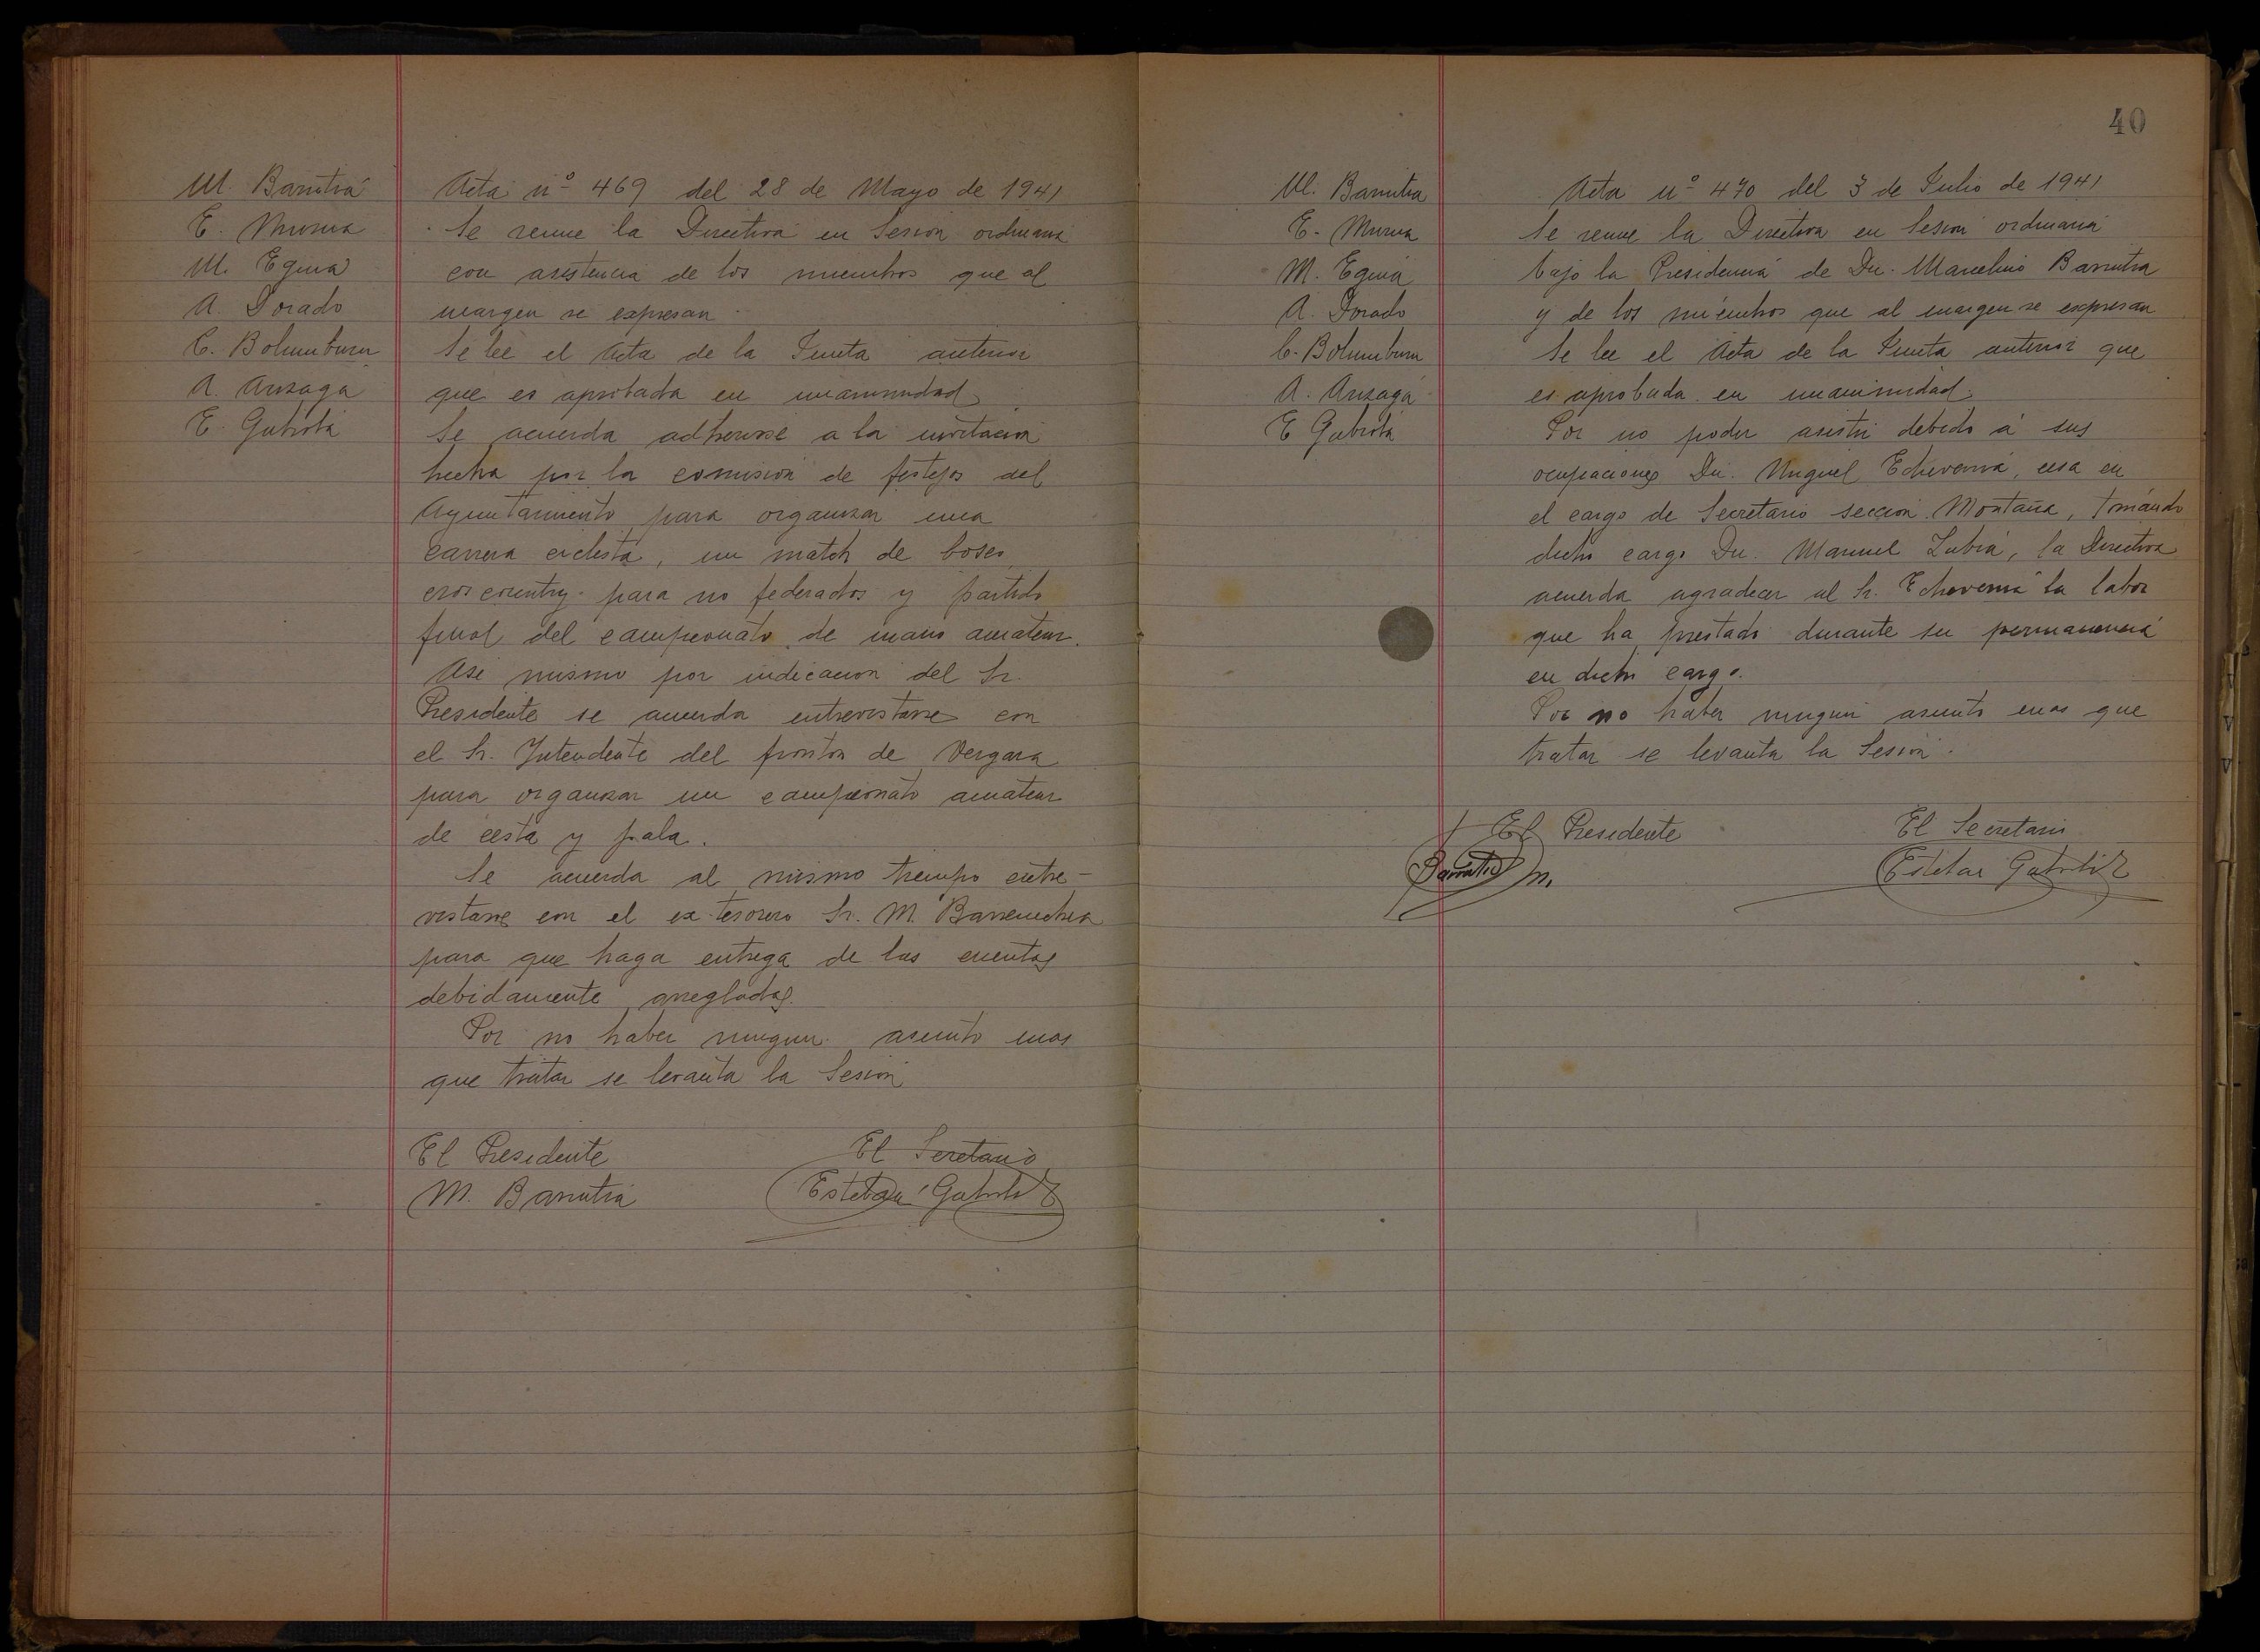 M. Barrutia
E. Murua
M. Eguia
A. Dorado
C. Bolumburu
A. Anzaga
E. Gabiola
Acta nº 469 del 28 de Mayo de 1941
Se reune la Directiva en Sesion ordinaria
con asistencia de los miembros que al
margen se expresan
Se lee el Acta de la Junta anterior
que es aprobada en unanimidad
Se acuerda adherirse a la invitacion
hecha por la comision de festejos del
Ayuntamiento para organizar una
carrera ciclista, un match de boseo
cros country para no federados y partido
final del campeonato de mano amateur.
Asi mismo por indicacion del Sr.
Presidente se acuerda entrevistarse con
el Sr. Intendente del fronton de Vergara
para organizar un campeonato amateur
de cesta y pala.
Se acuerda al mismo tiempo entre-
vistarse con el ex-tesorero Sr. M. Barrenechea
para que haga entrega de las cuentas
debidamente arregladas.
Por no haber ningun asunto mas
que tratar se levanta la Sesion
El Presidente El Seretario
M. Barrutia Esteban
40
M. Barrutia
E. Murua
M. Eguia
A. Dorado
C. Bolumburu
A. Anzaga
E Gabiola
Acta nº 470 del 3 de Julio de 1941
Se reune la Directiva en Sesion ordinaria
bajo la Presidencia de Dn. Marcelino Barrutia
y de los miembros que al margen se expresan
Se lee el Acta de la Junta anterior que
es aprobada en unanimidad.
Por no poder asistir debido á sus
ocupaciones Dn. Miguel Echeverria, cesa en
el cargo de Secretario seccion Montaña, tomando
dicho cargo Dn. Manuel Zubia, la Directiva
acuerda agradecer al Sr. Echeverria la labor
que ha prestado durante su permanencia
en dicho cargo.
Por no haber ningun asunto mas que
tratar se levanta la Sesion.
El Presidente El Secretario
Barrutia M. Esteban